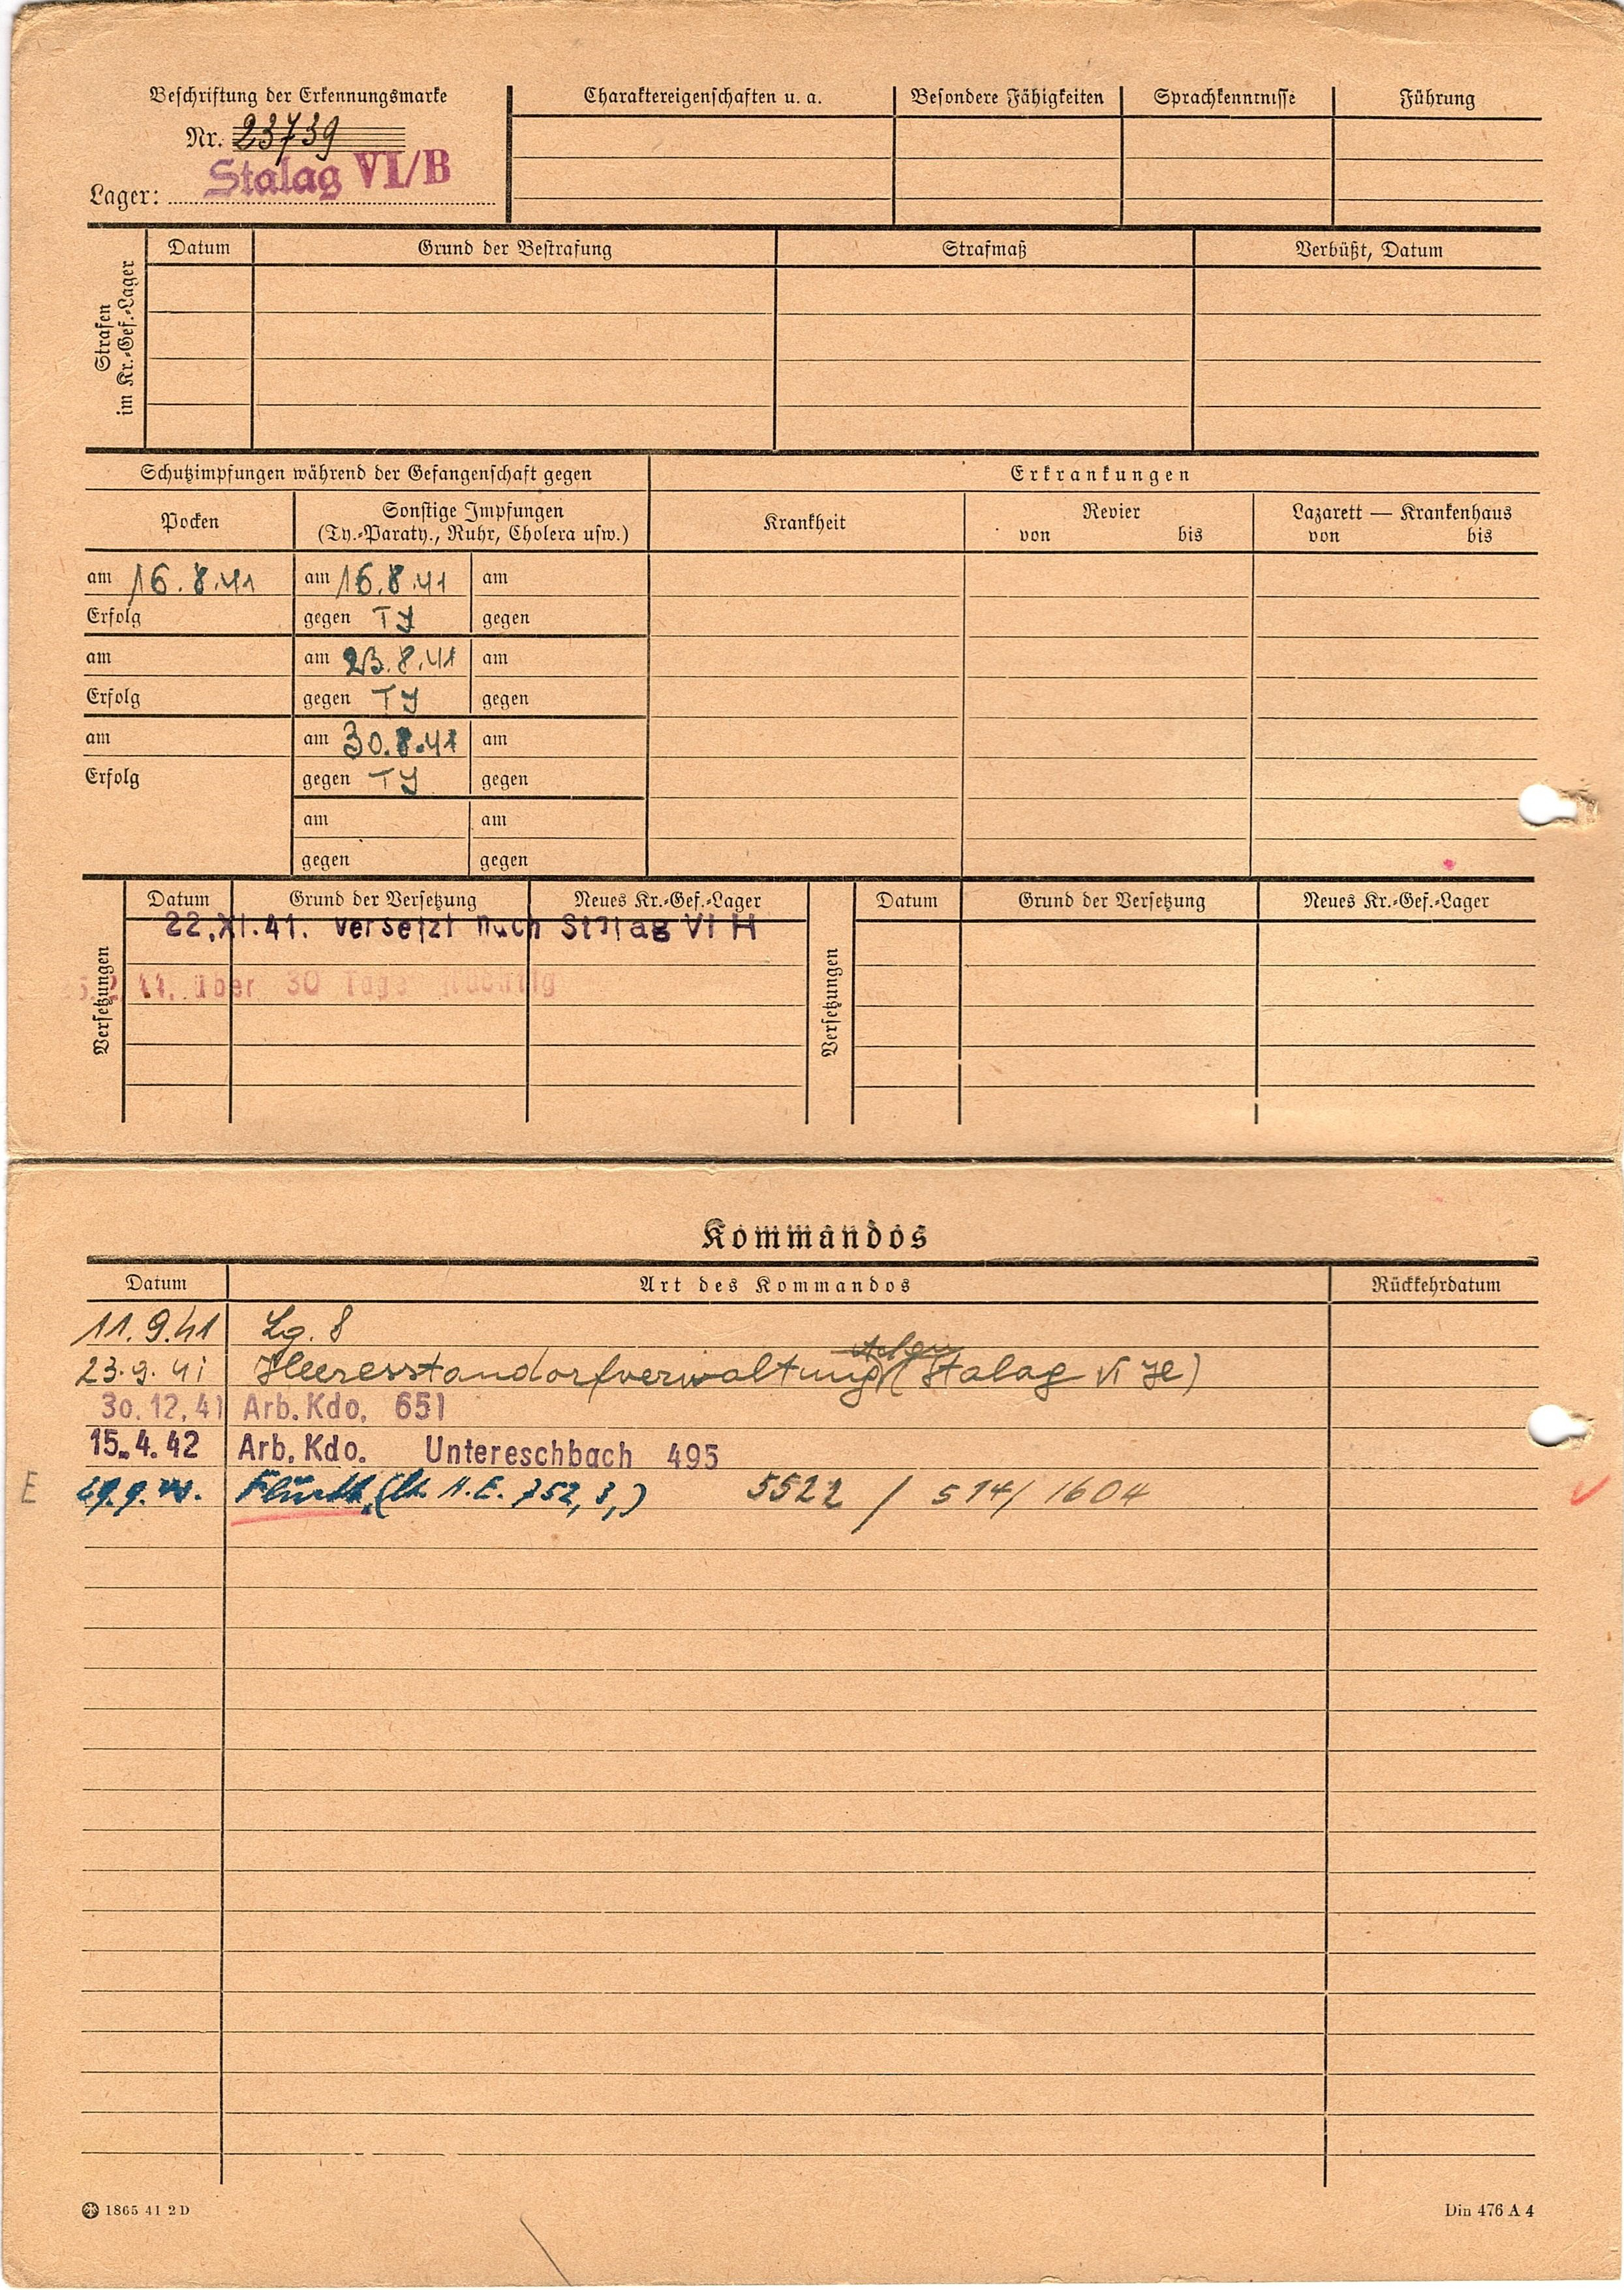 Beschriftung der Erkennungsmarke
Nr. 23739
Lager: Stalag VI/B
Charaktereigenschaften u. a.
Besondere Fähigkeiten
Sprachkenntnisse
Führung
Strafen
im Kr.-Gef.-Lager
Datum
Grund der Bestrafung
Strafmaß
Verbüßt, Datum
Schutzimpfungen während der Gefangenschaft gegen
Erkrankungen
Pocken
Sonstige Impfungen
(Ty.-Paraty., Ruhr, Cholera usw.)
Krankheit
Revier
von bis
Lazarett — Krankenhaus
von bis
am 16.8.41 am 16.8.41 am
Erfolg gegen TY gegen
am am 23.8.41 am
Erfolg gegen TY gegen
am am 30.8.41 am
Erfolg gegen TY gegen
am am
gegen gegen
Versetzungen
Datum Grund der Versetzung Neues Kr.-Gef.-Lager
22.XI.41. versetzt nach Stalag VI H
über 30 Tage flüchtig
Versetzungen
Datum Grund der Versetzung Neues Kr.-Gef.-Lager
Kommandos
Datum Art des Kommandos Rückkehrdatum
11.9.41 Lg. 8
23.9.41 Heeresstandortverwaltung (Stalag VI H)
30.12.41 Arb. Kdo. 651
15.4.42 Arb. Kdo. Untereschbach 495
E 752, 3,) 5522 / 514/1604
1865 41 2 D
Din 476 A 4